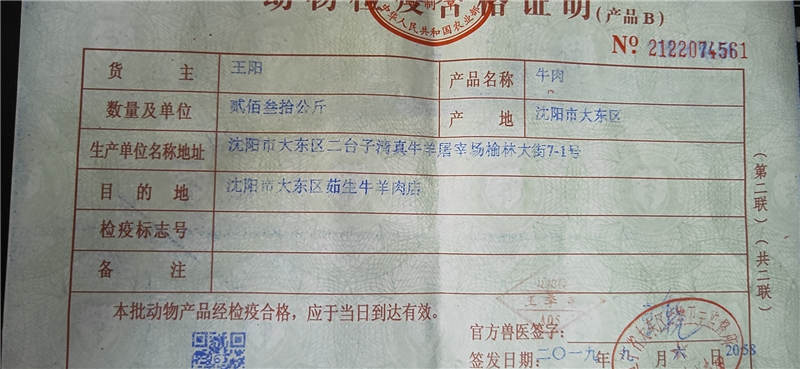 动物检疫合格证明(产品B)
中华人民共和国农业部
№ 2122074561
货主 王阳 产品名称 牛肉
数量及单位 贰佰叁拾公斤 产地 沈阳市大东区
生产单位名称地址 沈阳市大东区二台子清真牛羊屠宰场榆林大街7-1号
目的地 沈阳市大东区茹生牛羊肉店
检疫标志号
备注
本批动物产品经检疫合格,应于当日到达有效。
官方兽医签字:
签发日期:二〇一九年九月六日 2058
(第二联)(共二联)